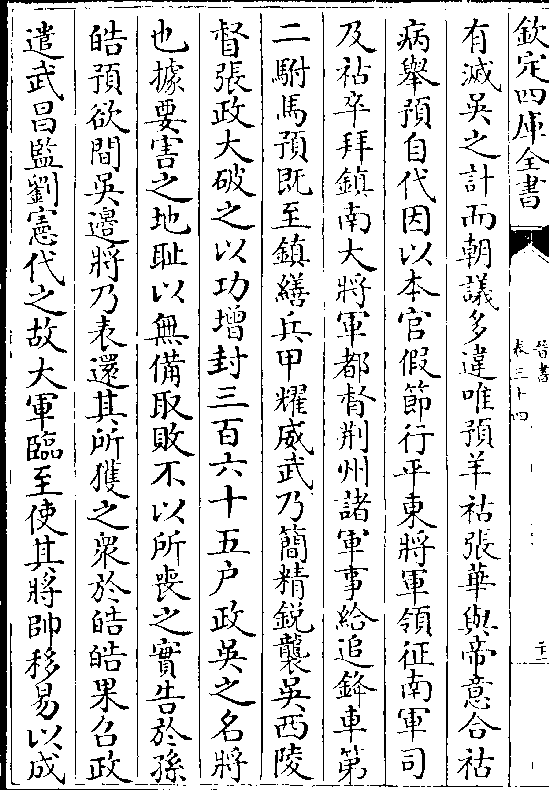 欽定四庫全書
晉書
卷三十四
有滅吳之計而朝議多違唯預羊祜張華與帝意合祜
病舉預自代因以本官假節行平東將軍領征南軍司
及祜卒拜鎮南大將軍都督荆州諸軍事給追鋒車第
二駙馬預既至鎮繕兵甲耀威武乃簡精鋭襲吳西陵
督張政大破之以功增封三百六十五户政吳之名將
也據要害之地恥以無備取敗不以所喪之實告於孫
皓預欲間吳邊將乃表還其所獲之衆於皓皓果召政
遣武昌監劉憲代之故大軍臨至使其將帥移易以成